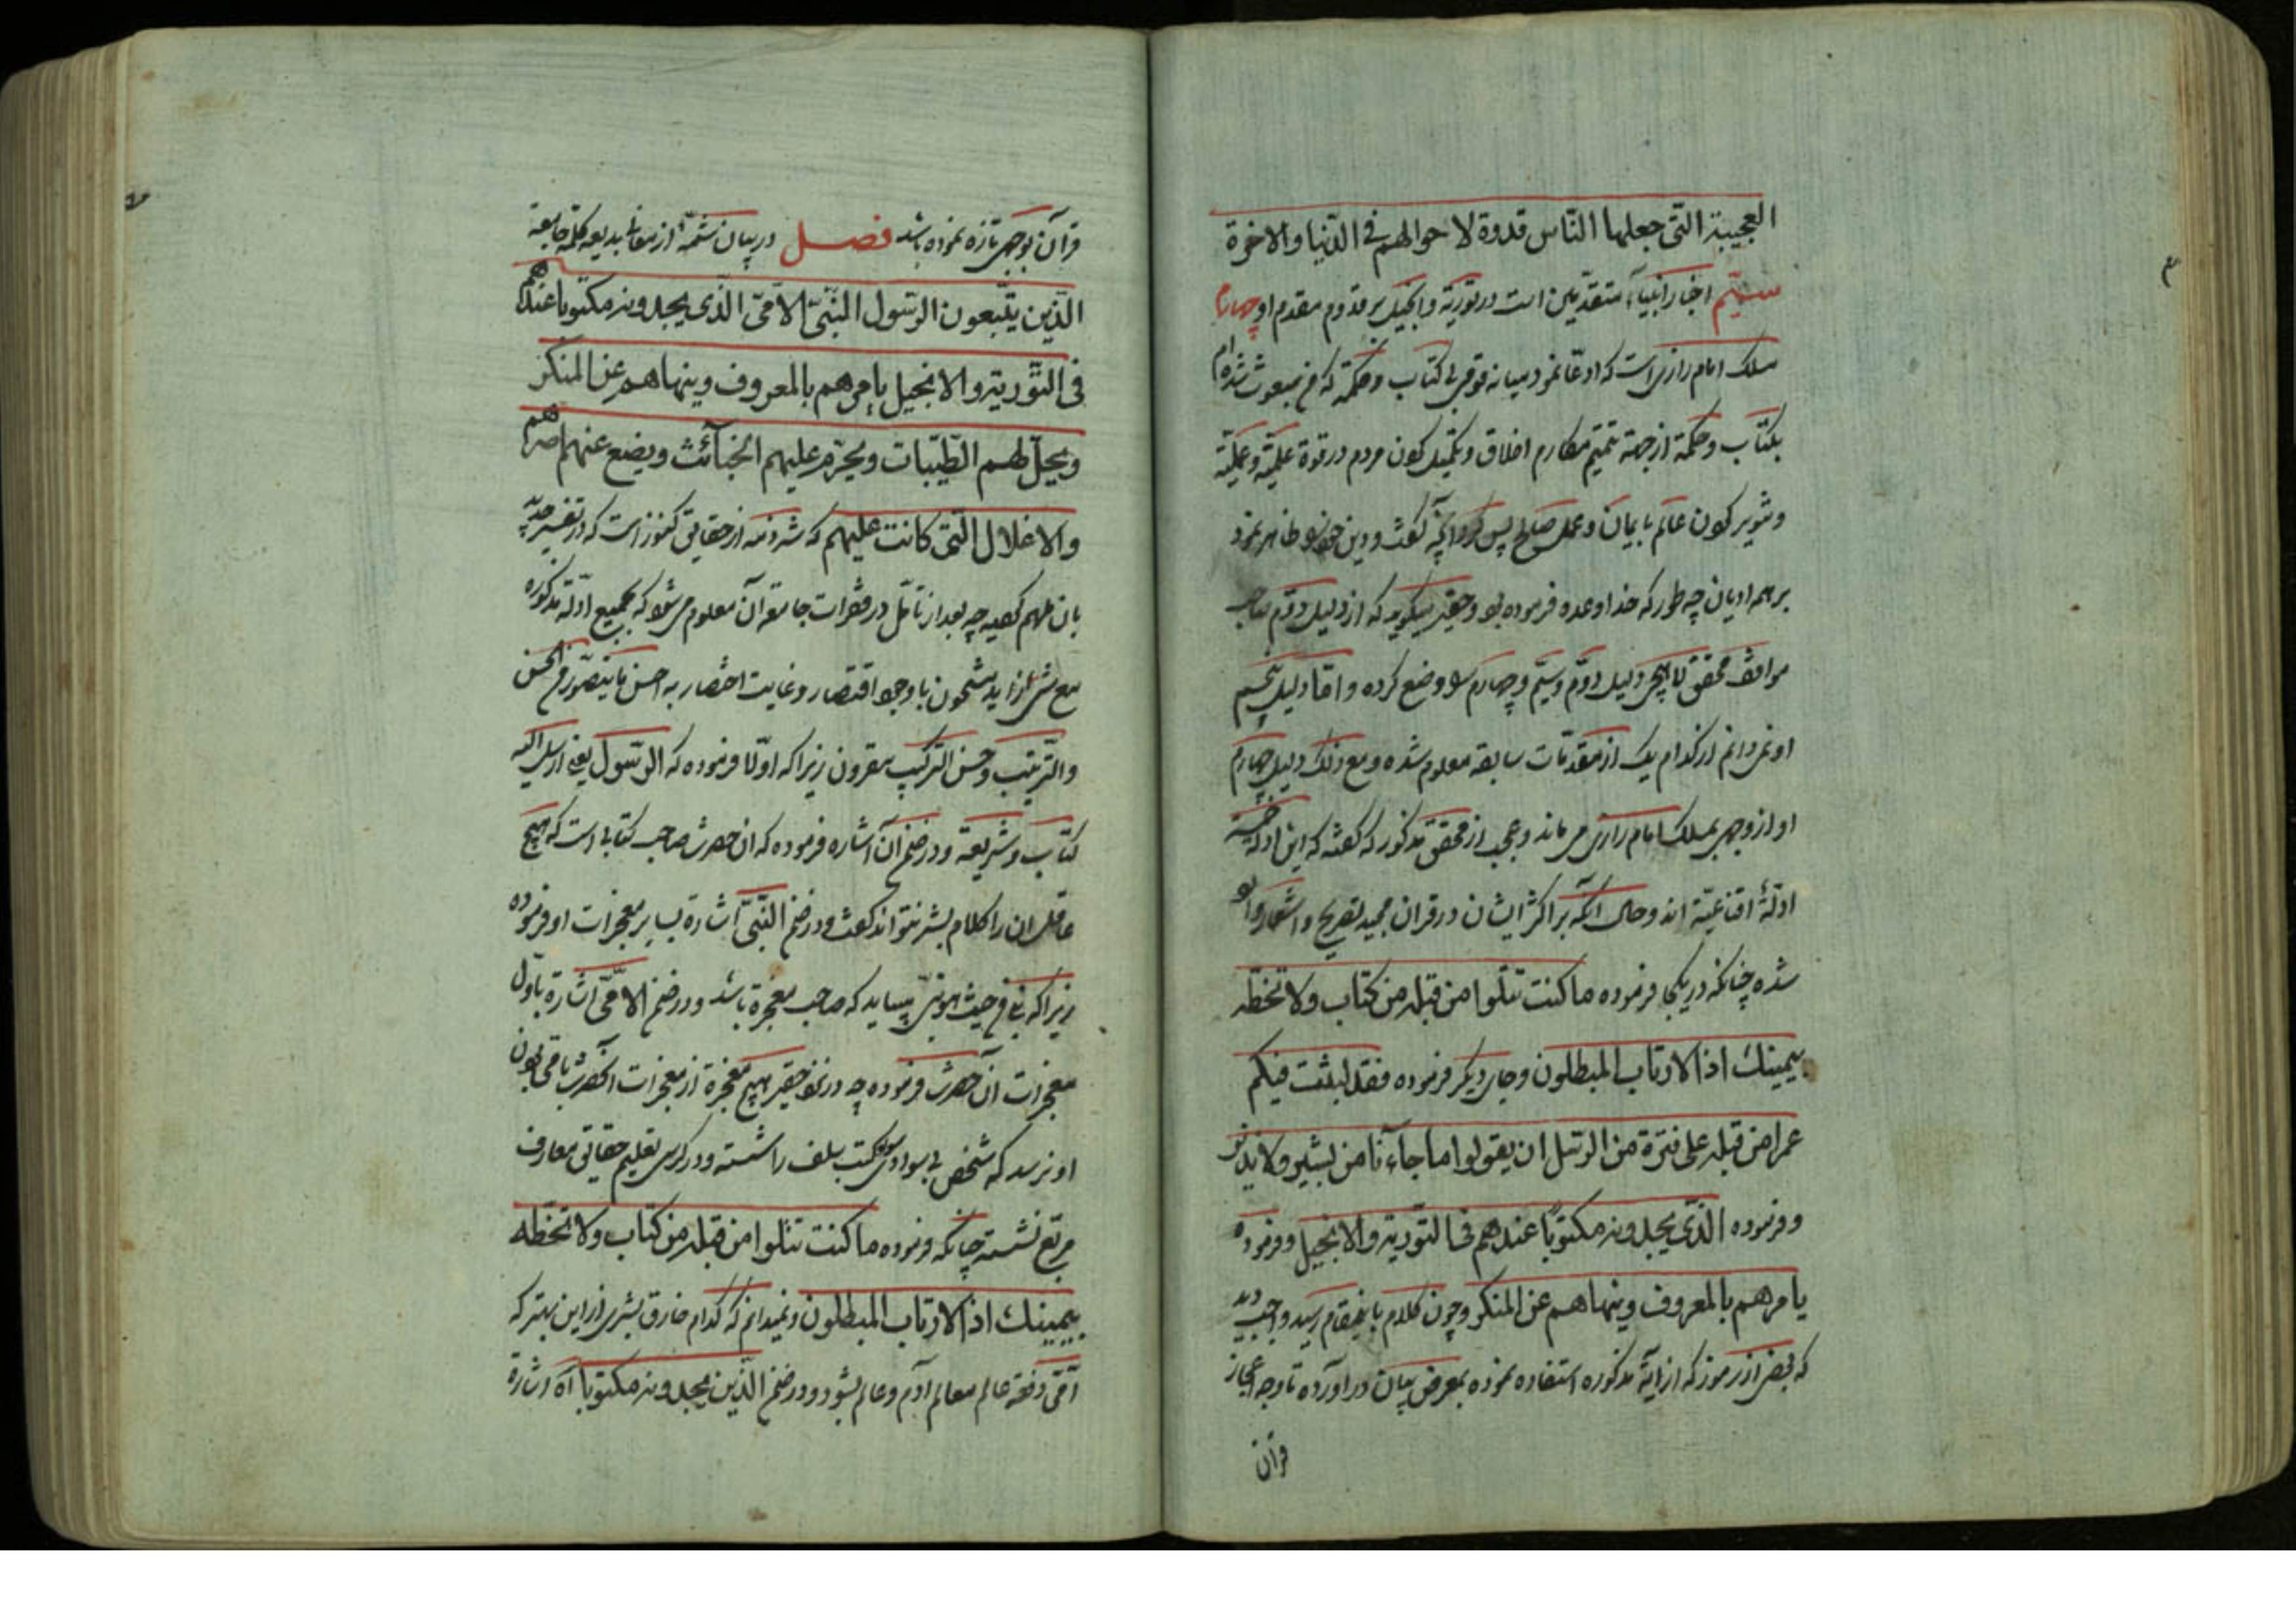 العجیبة الّتی جعلها النّاس قدوة لاحوالهم فی الدّنیا والاخرة
سیّم اخبار انبیآء متقدّمین است در توریة و انجیل بر قدوم مقدم او چهارم
مسلک امام رازی است که ادعّا نمود میانه قومی بی کتاب و حکمة که من مبعوث شده ام
بکتاب و حکمة از جهة تتمیم مکارم اخلاق و تکمیل کردن مردم در قوة علمیّه و عملیّه
و تنویر کردن عالم بایمان و عمل صالح پس کرد آنچه گفت و دین خود را ظاهر نمود
بر همه ادیان چه طور که خدا وعده فرموده بود و حقیر میگوید که از دلیل دوّم صاحب
مواقف محقق لاهیجی دلیل دوّم و سیّم و چهارم را وضع کرده و امّا دلیل پنجم
او نمی دانم از کدام یک از مقدّمات سابقه معلوم شده و مع ذلک دلیل چهارم
او از وجهی بمسلک امام رازی می ماند و عجب از محقق مذکور که گفته که این ادلّه خمسه
ادلّهٔ اقناعیّه اند و حال آنکه بر اکثر ایشان در قران مجید تصریح و اشعار واقع
شده چنانکه در یکجا فرموده ما کنت تتلوا من قبله من کتاب ولا تخطّه
بیمینک اذا لارتاب المبطلون و جای دیگر فرموده فقد لبثت فیکم
عمرا من قبله علی فترة من الرّسل ان یقولوا ما جاءنا من بشیر ولا نذیر
و فرموده الّذی یجدونه مکتوبًا عندهم فی التّوریة والانجیل و فرموده
یامرهم بالمعروف وینهاهم عن المنکر و چون کلام باینمقام رسید واجب دید
که بعضی از رموز که از ایهٔ مذکوره استفاده نموده بمعرض بیان در اورده تا وجه اعجاز
قرآن
قرآن بوجهی تازه نموده باشد فصل در بیان شمّهٔ از معانی بدیعه کلمه جامعه
الّذین یتّبعون الرّسول النّبیّ الامّیّ الّذی یجدونه مکتوبا عندهم
فی التّوریة والانجیل یامرهم بالمعروف وینهاهم عن المنکر
ویحلّ لهم الطّیّبات ویحرّم علیهم الخبآئث ویضع عنهم اصرهم
والاغلال الّتی کانت علیهم که شرذمه از حقایق کنوز است که در تفسیر
بان ملهم چه بعد از تأمّل در فقرات جامعه آن معلوم می شود که بجمیع ادلّه مذکوره
مع شیء زاید مشحون با وجود اقتصار و غایت اختصار به احسن ما یتصوّر فی الحسن
والتّرتیب و حسن الترکیب مقرون زیرا که اولّا فرموده که الرّسول یعنی ارسل الیه
کتاب و شریعة و در ضمن آن اشاره فرموده که ان حضرت صاحب کتابی است که هیچ
عاقل ان را کلام بشر نتواند گفت و در ضمن النّبیّ اشارة بسایر معجزات او فرموده
زیرا که نبی من حیث هو نبیّ میباید که صاحب معجزة باشد و در ضمن الامّیّ اشارة باوّل
معجزات آن حضرت فرموده چه در نزد حقیر هیچ معجزة از معجزات آنحضرت بامّی بودن
او نرسد که شخص بی سوادی سواد کتب سلف را شسته و در کرسی تعلیم حقایق معارف
مربّع نشسته چنانکه فرموده ما کنت تتلوا من قبله من کتاب ولا تخطّه
بیمینک اذا لارتاب المبطلون و نمیدانم که کدام خارق بشری از این بهتر که
امّی دفعة عالم معالم آدم و عالم بشود و در ضمن الّذین یجدونه مکتوبا آه اشارة